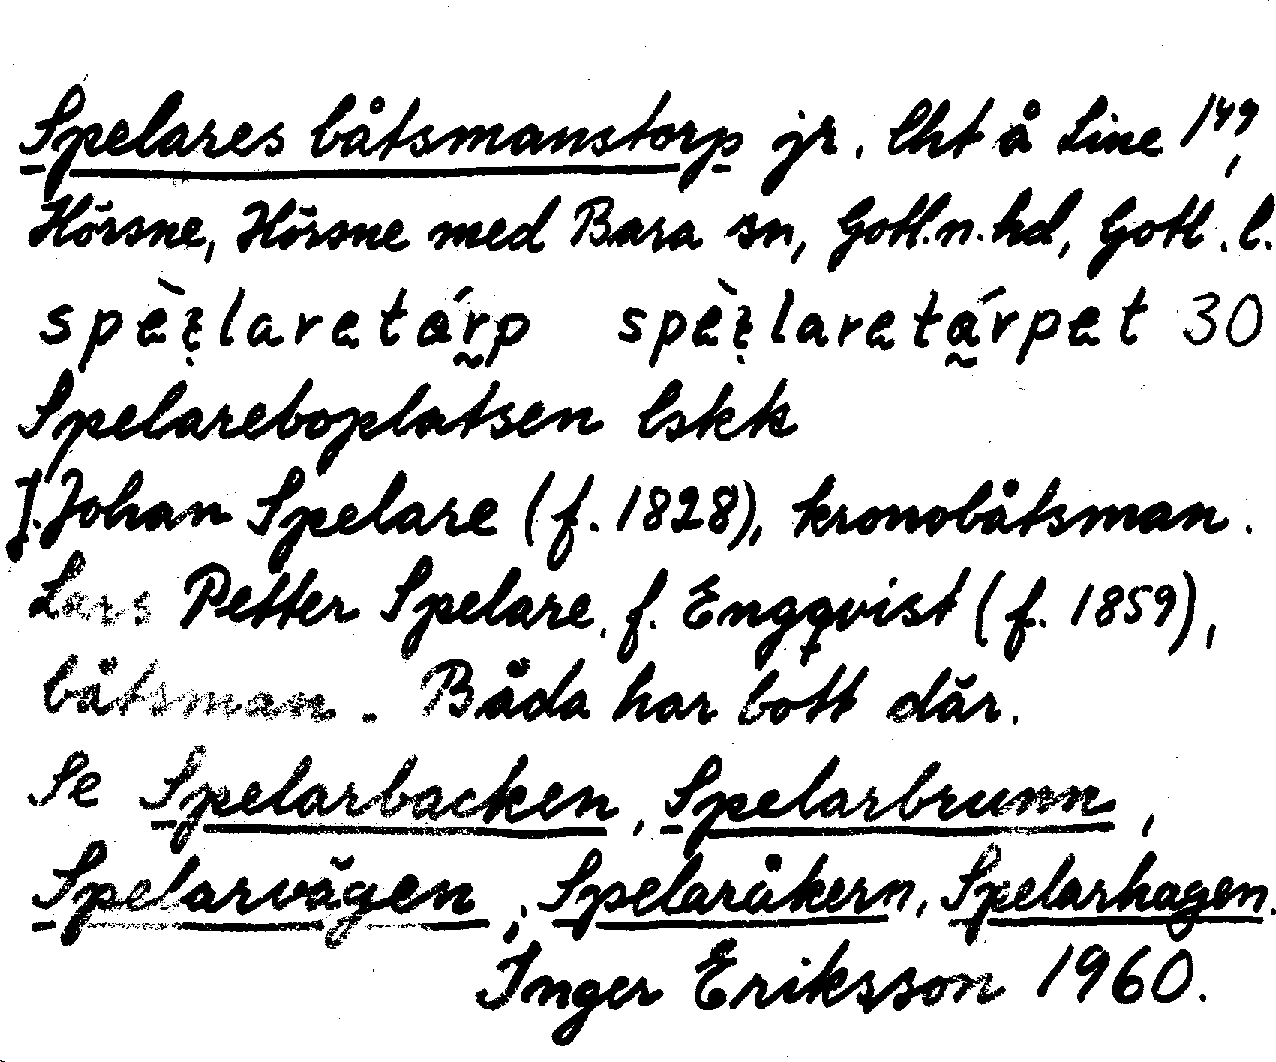 Spelares båtsmanstorp jr. lht å Line 1⁴⁹,
Hörsne, Hörsne med Bara sn, Gotl.n.hd, Gotl. l.
spè̀ꜫlaretárp spè̀ꜫlaretárpet 30
Spelareboplatsen lskk
J. Johan Spelare (f. 1828), kronobåtsman.
Lars Petter Spelare, f. Engqvist (f. 1859),
båtsman. Båda har bott där.
Se Spelarbacken, Spelarbrunn,
Spelarvägen, Spelaråkern, Spelarhagen.
Inger Eriksson 1960.